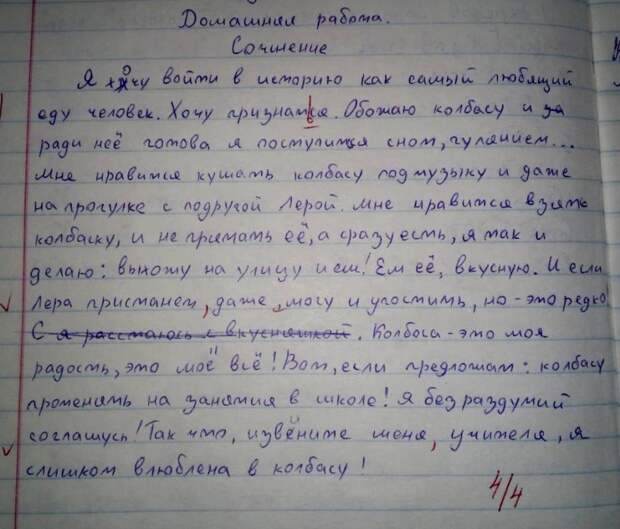 Домашняя работа.
Сочинение
Я хочу войти в историю как самый любящий
еду человек. Хочу признаться. Обожаю колбасу и за
ради неё готова я поступится сном, гулянием...
Мне нравится кушать колбасу под музыку и даже
на прогулке с подругой Лерой. Мне нравится взять
колбаску, и не прятать её, а сразу есть, я так и
делаю: выхожу на улицу и ем! Ем её, вкусную. И если
Лера пристанет, даже могу и угостить, но - это редко!
С я расстаюсь с вкусняшкой. Колбоса - это моя
радость, это моё всё! Вот, если предложат: колбасу
променять на занятия в школе! Я без раздумий
соглашусь! Так что, извените меня, учителя, я
слишком влюблена в колбасу!
4/4